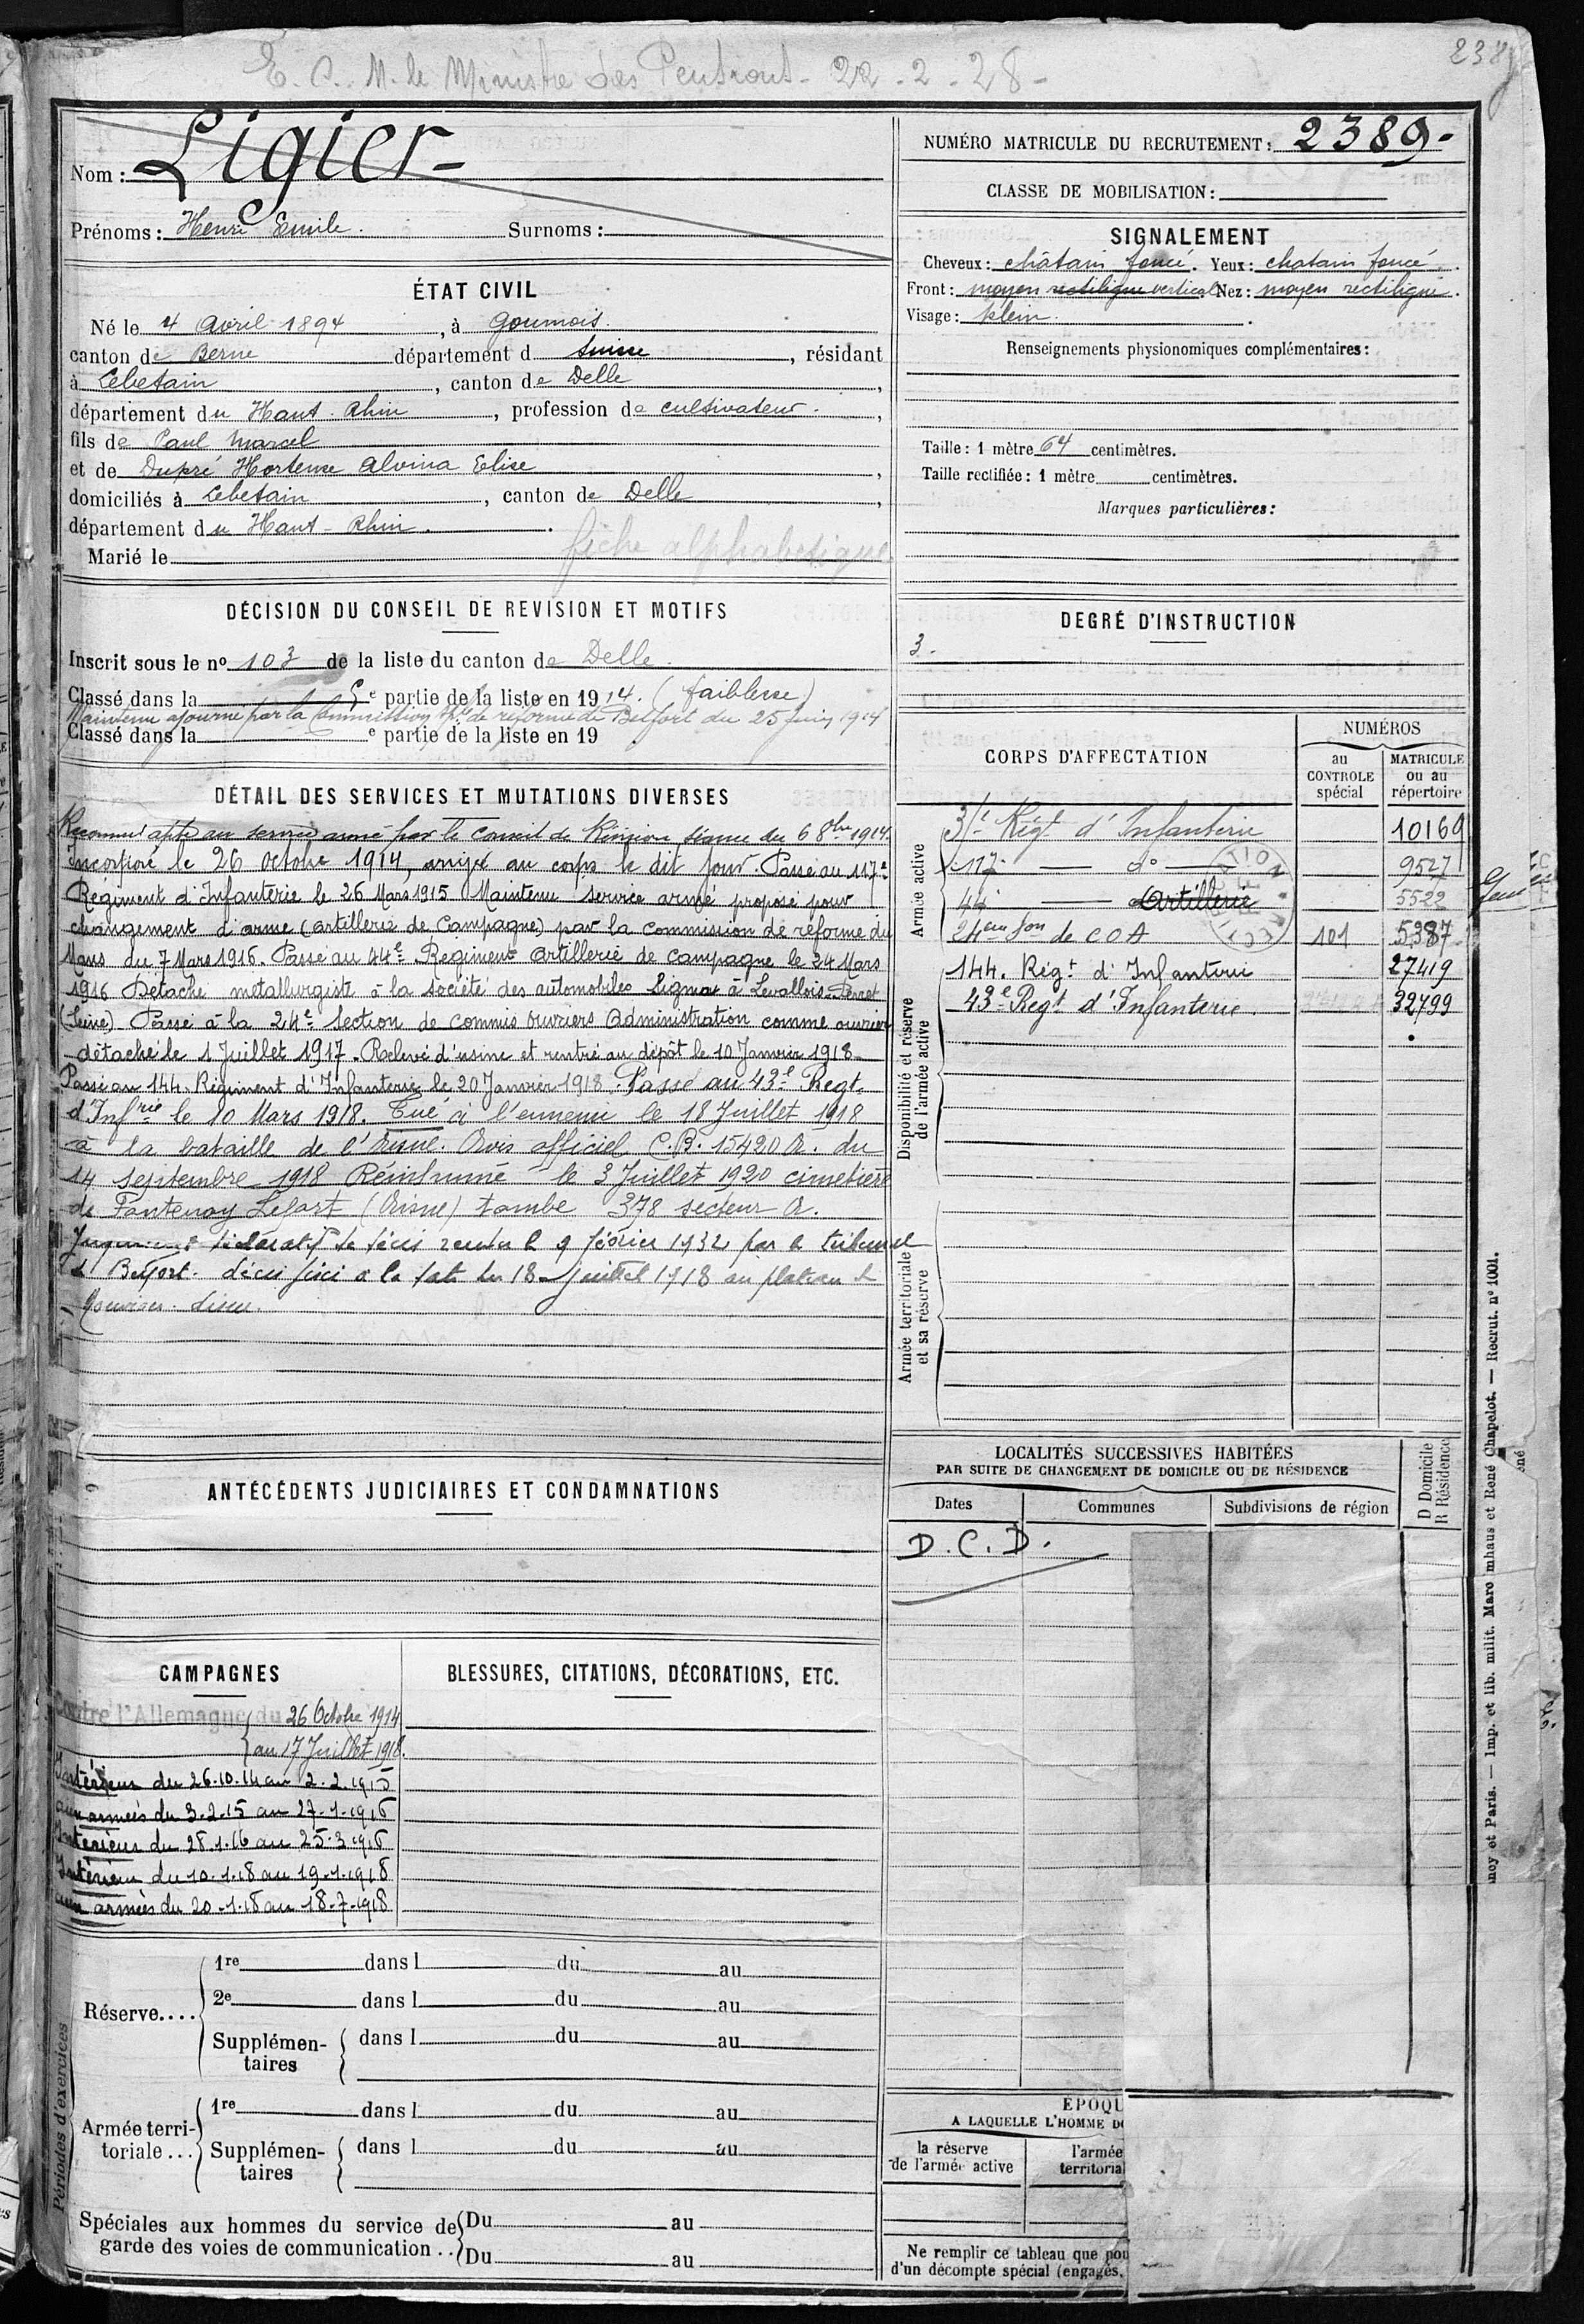 E. C. M. le Ministre des Pensions - 22 - 2 - 28 -
238
Nom : Ligier -
Prénoms : Henri Emile. Surnoms :
ÉTAT CIVIL
Né le 4 Avril 1894, à Goumois.
canton de Berne département d Suisse, résidant
à Lebetain, canton de Delle,
département du Haut-Rhin, profession de cultivateur.,
fils de Paul Marcel
et de Dupré Hortense Alvina Elise,
domiciliés à Lebetain, canton de Delle,
département du Haut-Rhin.
Marié le
fiche alphabétique
DÉCISION DU CONSEIL DE REVISION ET MOTIFS
Inscrit sous le nº 103 de la liste du canton de Delle.
Classé dans la 5e partie de la liste en 1914. (faiblesse)
Maintenu ajourné par la Commission de réforme de Belfort du 25 juin 1914
Classé dans la e partie de la liste en 19
DÉTAIL DES SERVICES ET MUTATIONS DIVERSES
Reconnu apte au service armé par le conseil de Révision séance du 6 8bre 1914.
Incorporé le 26 Octobre 1914, arrivé au corps le dit jour. Passé au 117e
Régiment d'Infanterie le 26 Mars 1915 Maintenu service armé proposé pour
changement d'arme (artillerie de Campagne) par la commission de réforme du
Mans du 7 Mars 1916. Passé au 44e Régiment Artillerie de Campagne le 24 Mars
1916 Détaché métallurgiste à la société des automobiles Sigma à Levallois-Perret
(Seine) Passé à la 24e Section de commis ouvriers Administration comme ouvrier
détaché le 1 Juillet 1917. Relevé d'usine et rentré au dépôt le 10 Janvier 1918.
Passé au 144. Régiment d'Infanterie le 20 Janvier 1918. Passé au 43e Regt.
d'Infrie le 10 Mars 1918. Tué à l'ennemi le 18 Juillet 1918
à la bataille de l'Aisne. Avis officiel C.B. 15420 A. du
14 septembre 1918 Réinhumé le 3 Juillet 1920 cimetière
de Fontenoy Lefort (Aisne) tombe 378 secteur A.
Jugement déclaratif de décès rendu le 9 février 1932 par le tribunal
de Belfort. décès fixé à la date du 18 juillet 1918 au plateau de
ANTÉCÉDENTS JUDICIAIRES ET CONDAMNATIONS
CAMPAGNES
Contre l'Allemagne du 26 Octobre 1914
au 17 Juillet 1918.
Intérieur du 26.10.14 au 2.2.1915
aux armées du 3.2.15 au 27.1.1916
Intérieur du 28.1.16 au 25.3.1916
Intérieur du 10.1.18 au 19.1.1918
aux armées du 20.1.18 au 18.7.1918
BLESSURES, CITATIONS, DÉCORATIONS, ETC.
Périodes d'exercices
Réserve....
1re dans l du au
2e dans l du au
Supplémentaires dans l du au
Armée territoriale...
1re dans l du au
Supplémentaires dans l du au
Spéciales aux hommes du service de garde des voies de communication..
Du au
Du au
NUMÉRO MATRICULE DU RECRUTEMENT : 2389 -
CLASSE DE MOBILISATION :
SIGNALEMENT
Cheveux : châtain foncé. Yeux : chatain foncé.
Front : moyen rectiligne vertical Nez : moyen rectiligne.
Visage : plein.
Renseignements physionomiques complémentaires :
Taille : 1 mètre 64 centimètres.
Taille rectifiée : 1 mètre centimètres.
Marques particulières :
DEGRÉ D'INSTRUCTION
3.
CORPS D'AFFECTATION
NUMÉROS
au CONTROLE spécial
MATRICULE ou au répertoire
Armée active
Régt d'Infanterie 10169
117e — do — 9527
44 — Artillerie 5522
24eme son de COA 101 5387
Disponibilité et réserve de l'armée active
144. Régt d'Infanterie 27419
43e Regt d'Infanterie. 32499
Armée territoriale et sa réserve
LOCALITÉS SUCCESSIVES HABITÉES
PAR SUITE DE CHANGEMENT DE DOMICILE OU DE RÉSIDENCE
Dates Communes Subdivisions de région
D Domicile
R Résidence
D.C.D.
ÉPOQU
A LAQUELLE L'HOMME D
la réserve de l'armée active
l'armée territoria
Ne remplir ce tableau que pou
d'un décompte spécial (engagés,
ncy et Paris. — Imp. et lib. milit. Marc mhaus et René Chapelot. — Recrut. nº 1001.